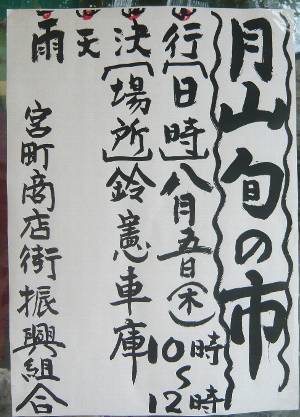 月山旬の市
[日時]八月五日(木)10時~12時
[場所]鈴憲車庫
雨天決行
宮町商店街振興組合